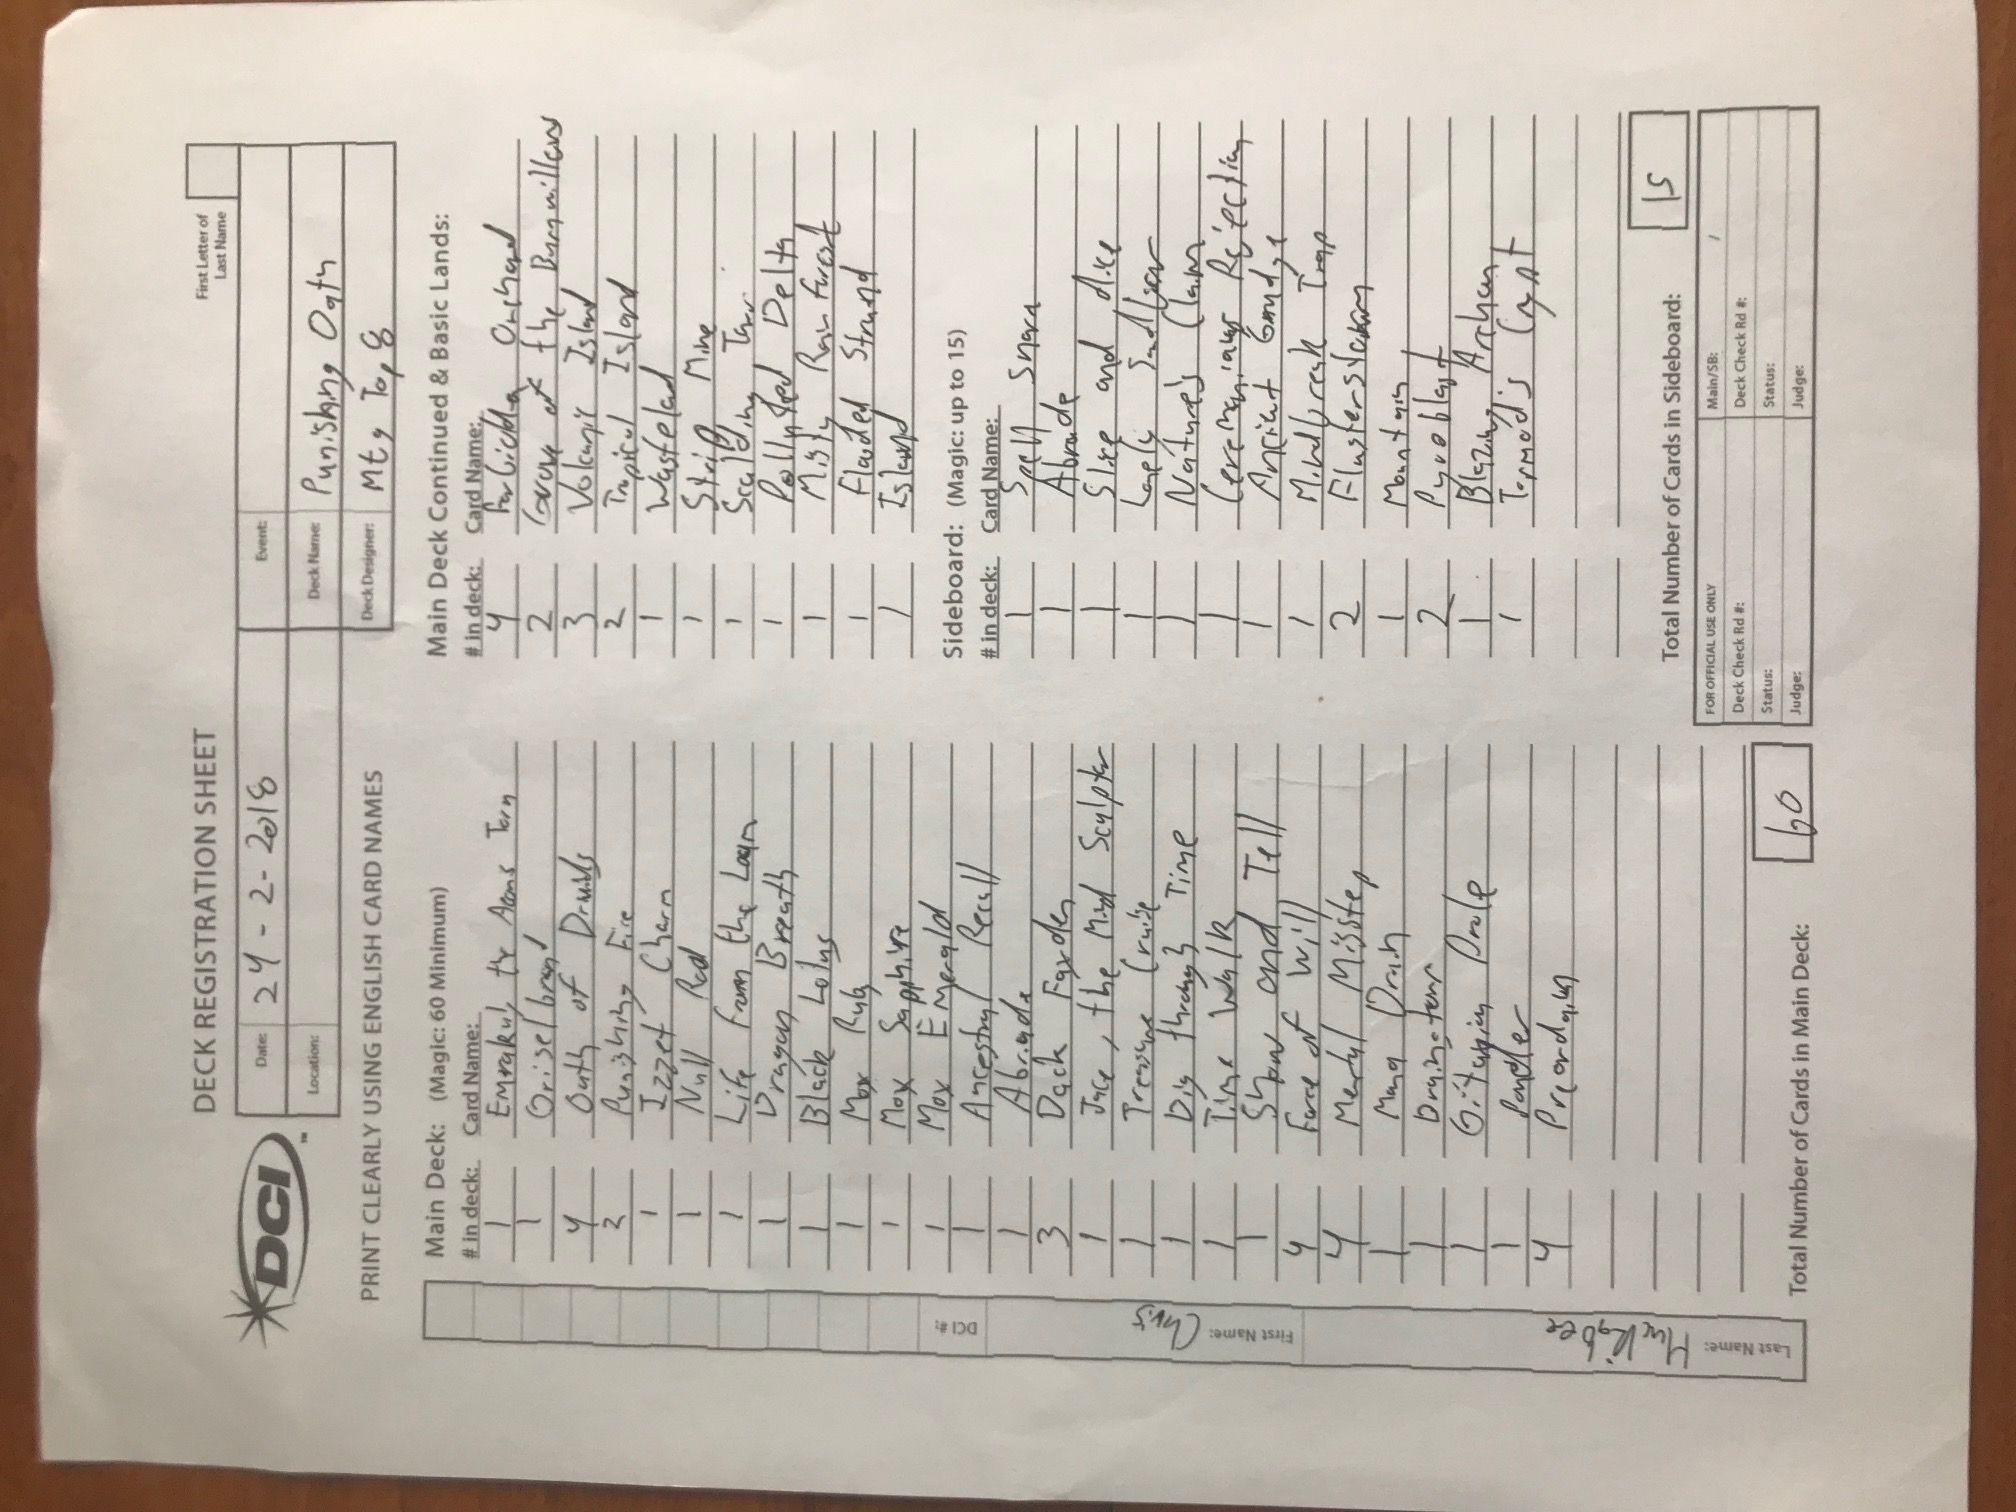 DECK REGISTRATION SHEET
First Letter of
Last Name
DCI
TM
Date: 24-2-2018
Event:
Location:
Deck Name: Punishing Oath
PRINT CLEARLY USING ENGLISH CARD NAMES
Deck Designer: Mtg Top 8
Main Deck: (Magic: 60 Minimum)
# in deck: Card Name:
1 Emrakul, the Aeons Torn
1 Griselbrand
4 Oath of Druids
2 Punishing Fire
1 Izzet Charm
1 Null Rod
1 Life from the Loam
1 Dragon Breath
1 Black Lotus
1 Mox Ruby
1 Mox Sapphire
1 Mox Emerald
1 Ancestral Recall
1 Abrade
3 Dack Fayden
1 Jace, the Mind Sculptor
1 Treasure Cruise
1 Dig through Time
1 Time Walk
1 Show and Tell
4 Force of Will
4 Mental Misstep
1 Mana Drain
1 Brainstorm
1 Gitaxian Probe
1 Ponder
4 Preordain
Total Number of Cards in Main Deck: 60
Main Deck Continued & Basic Lands:
# in deck: Card Name:
4 Forbidden Orchard
2 Grove of the Burnwillows
3 Volcanic Island
2 Tropical Island
1 Wastelad
1 Strip Mine
1 Scalding Tarn
1 Polluted Delta
1 Misty Rainforest
1 Flooded Strand
1 Island
Sideboard: (Magic: up to 15)
# in deck: Card Name:
1 Spell Snare
1 Abrade
1 Slice and dice
1 Lonely Sandbar
1 Nature's Claim
1 Ceremonious Rejection
1 Ancient Grudge
1 Mindbreak Trap
2 Flusterstorm
1 Mountain
2 Pyroblast
1 Blazing Archon
1 Tormod's Crypt
Total Number of Cards in Sideboard: 15
FOR OFFICIAL USE ONLY
Main/SB: /
Deck Check Rd #:
Deck Check Rd #:
Status:
Status:
Judge:
Judge:
Last Name: Huckabee
First Name: Chris
DCI #: